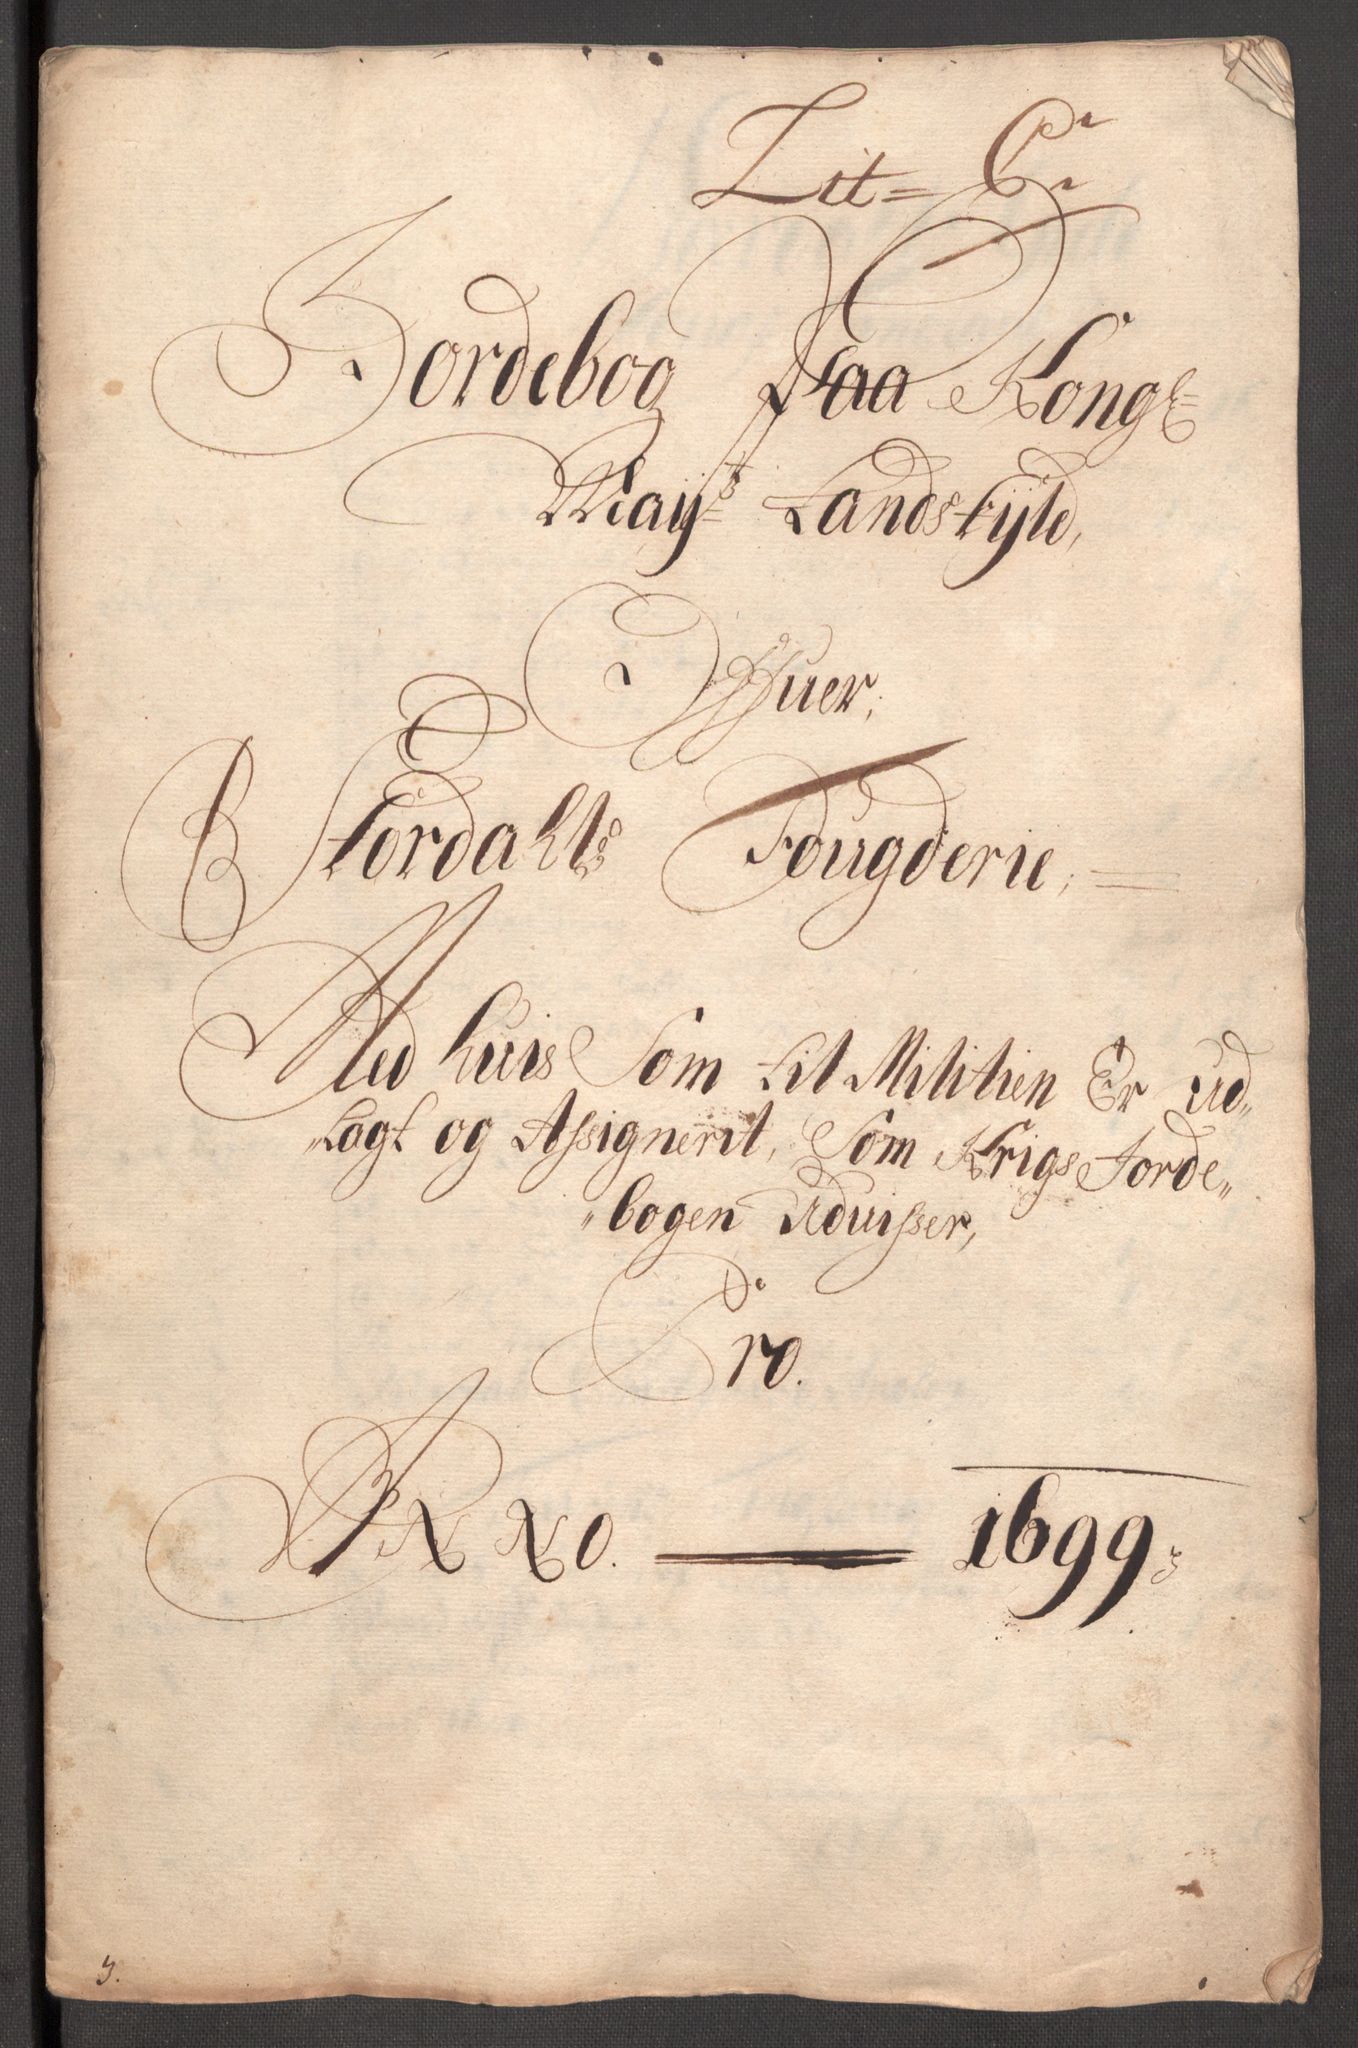 Lit= C
Jordebog Paa Kongl=
May=ts Landskyld,
Offuer,
Størdahls Fougderie,
Med huis Som til Militien Er ud„
„lagt og Assignerit, Som Krigs Jorde„
„bogen Uduisser,
Pro.
ANNO. 1699
3.